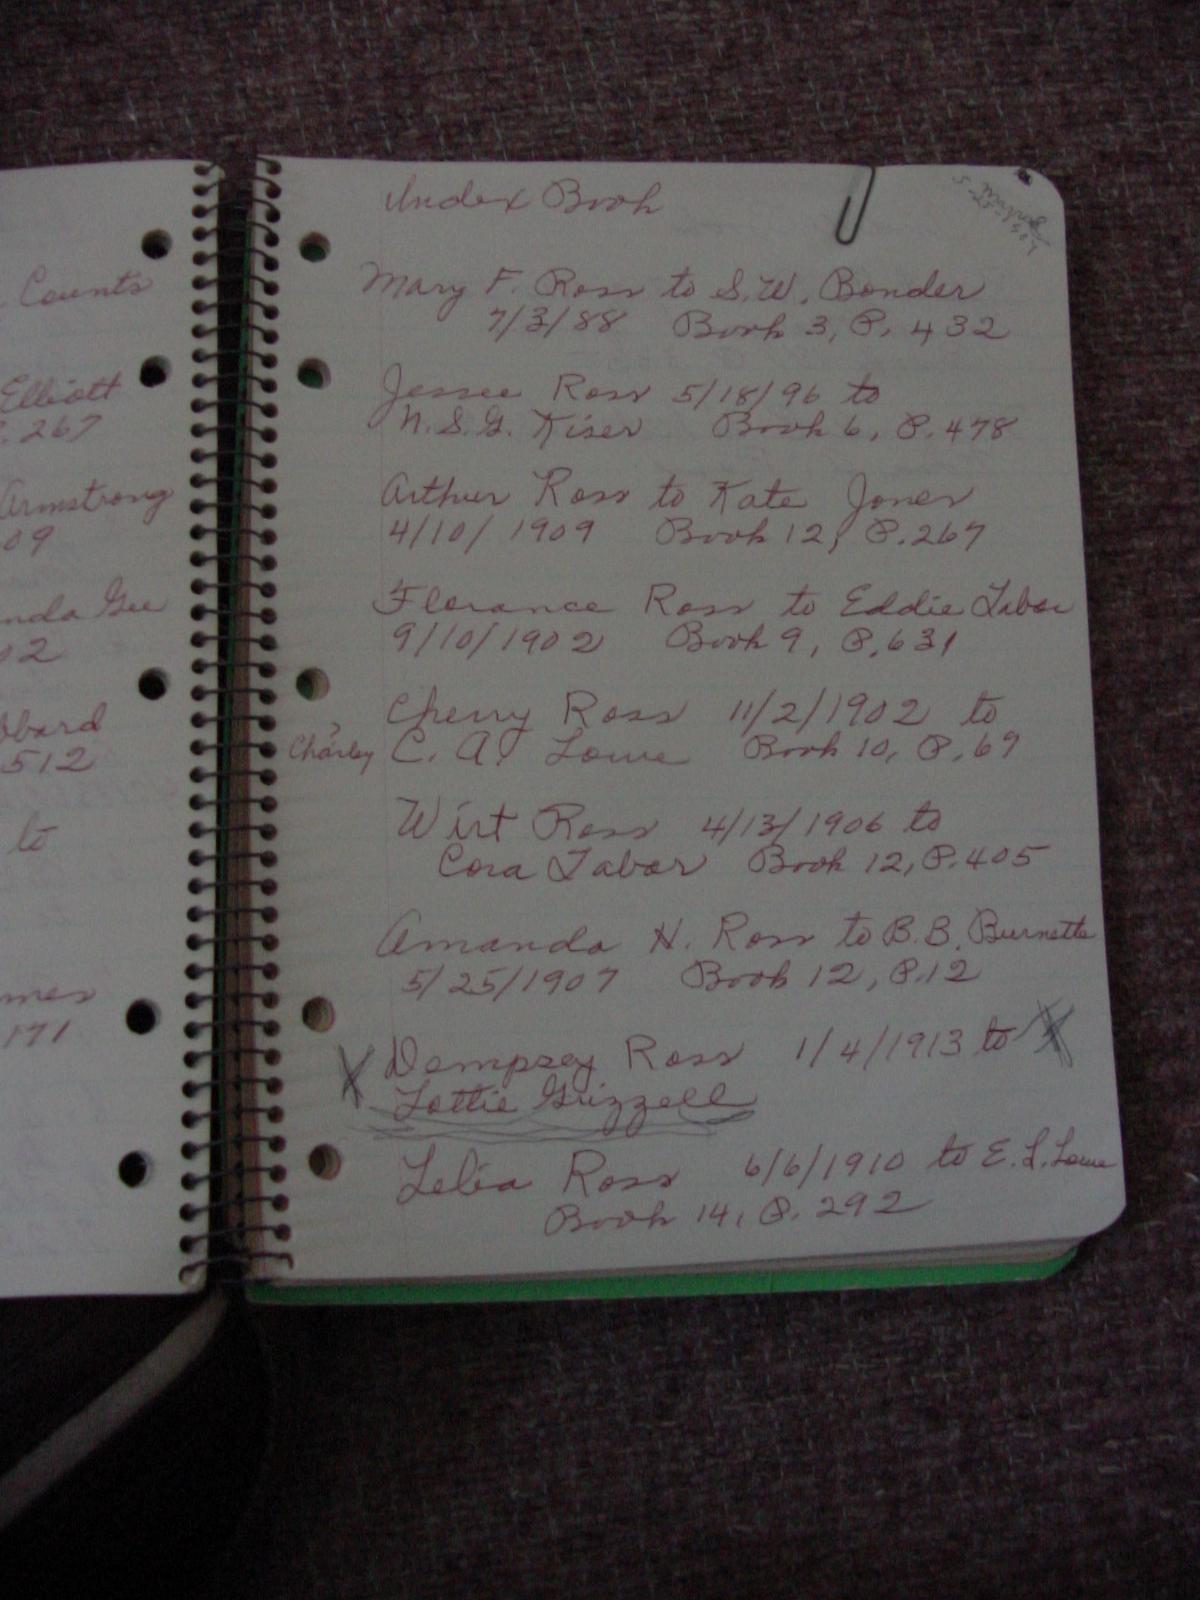 Counts
Elliott
P. 267
Armstrong
09
nda Gee
02
bbard
512
to
mes
171
Index Book
Mary F. Ross to S. W. Bonder
7/3/88 Book 3, P. 432
Jessee Ross 5/18/96 to
N. S. G. Kiser Book 6, P. 478
Arthur Ross to Kate Jones
4/10/1909 Book 12, P. 267
Florance Ross to Eddie Tabor
9/10/1902 Book 9, P. 631
Cherry Ross 11/2/1902 to
? Charley C. A. Lowe Book 10, P. 69
Wirt Ross 4/13/1906 to
Cora Tabor Book 12, P. 405
Amanda H. Ross to B. B. Burnette
5/25/1907 Book 12, P. 12
X Dempsey Ross 1/4/1913 to X
Lottie Grizzell
Lelia Ross 6/6/1910 to E. L. Lowe
Book 14, P. 292